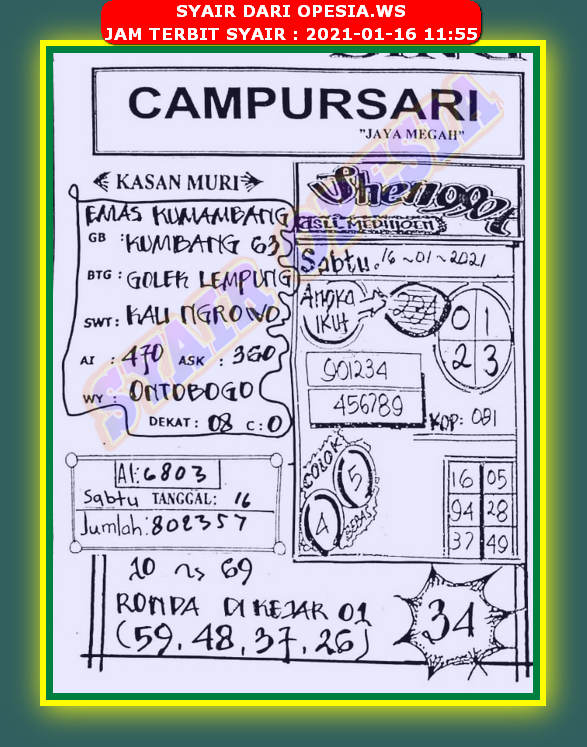 SYAIR DARI OPESIA.WS
JAM TERBIT SYAIR : 2021-01-16 11:55
CAMPURSARI
"JAYA MEGAH"
KASAN MURI
EMAS KUMAMBANG
GB : KUMBANG 63
BTG : GOLEK LEMPUNG
SWT : KALI NGROWO
AI : 470 ASK : 360
WY : ONTOBOGO
DEKAT : 08 C : 0
AI : 6803
Sabtu TANGGAL : 16
Jumlah : 802357
Shenggot
ASLI
Sabtu, 16-01-2021
ANGKA IKUT
234
0 1
2 3
901234
456789
KOP : 081
COLOK
5
4
BEBAS
16 05
94 28
37 49
10 ns 69
RONDA DI KEJAR 01
(59, 48, 37, 26)
34
SYAIR OPESIA